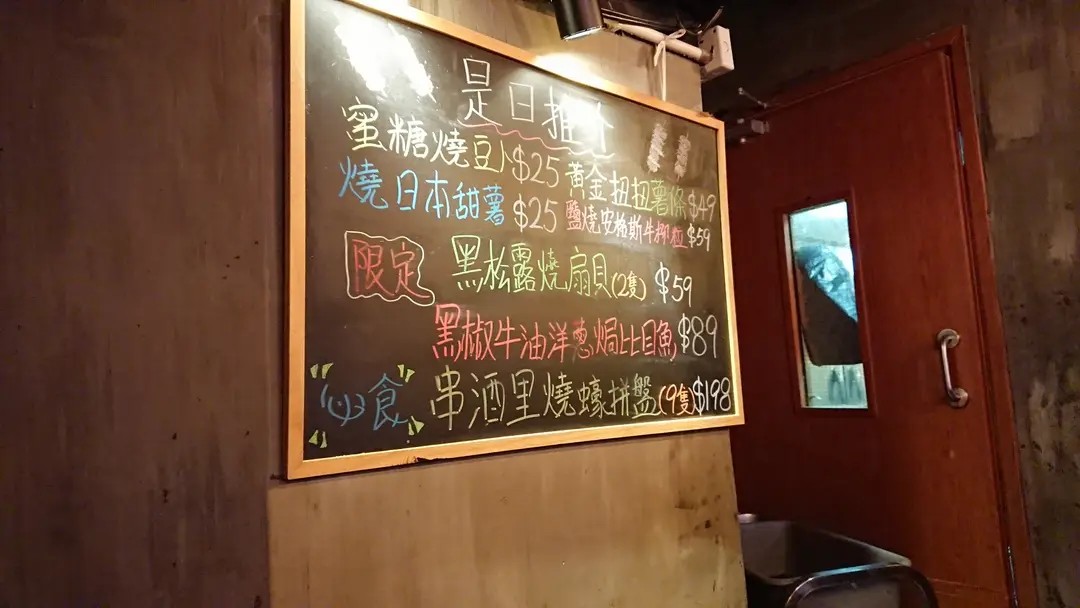 是日推介
蜜糖燒豆卜$25 黃金扭扭薯條$49
燒日本甜薯$25 鹽燒安格斯牛柳粒$59
限定 黑松露燒扇貝(2隻) $59
黑椒牛油洋蔥焗比目魚$89
必食 串酒里燒蠔拼盤(9隻)$198